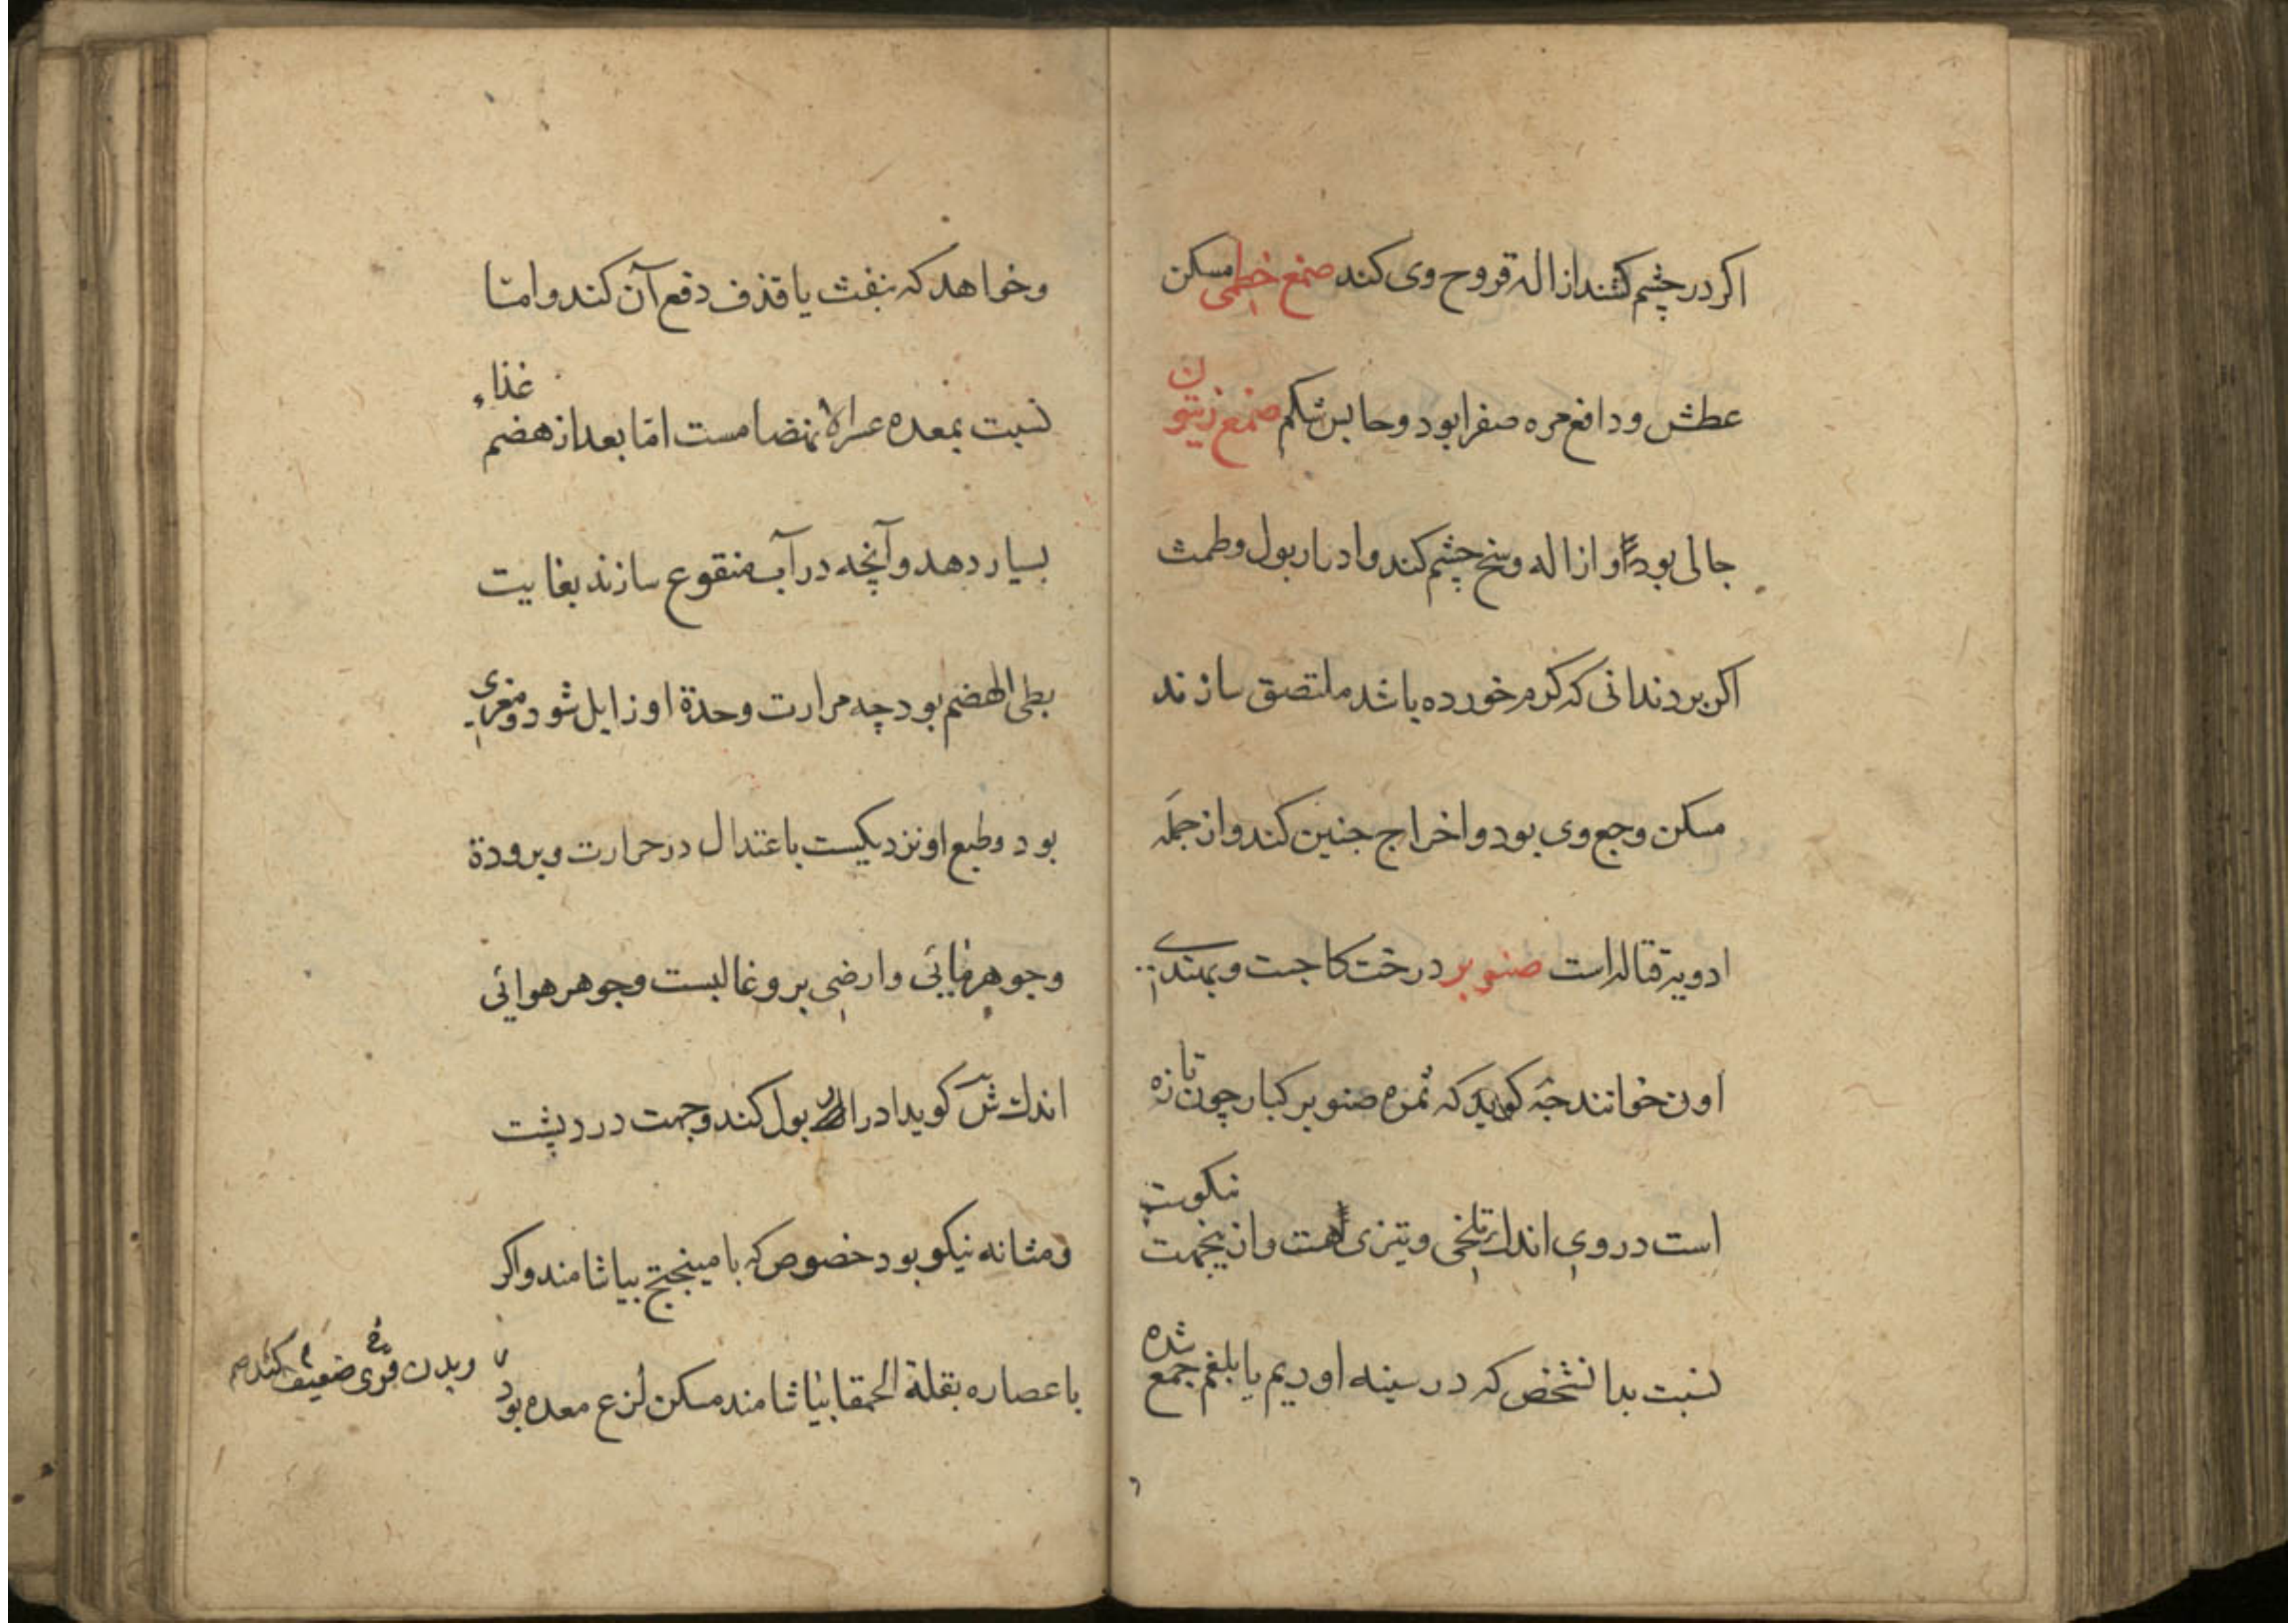 اکر در چشم کشند ازاله قروح وی کند صمغ خطمی مسکن
عطش و دافع مره صفرا بود و حابس شکم صمغ زیتون
جالی بود و ازاله وسخ چشم کند و ادرار بول و طمث
اکر بر دندانی که کرم خورده باشد ملتصق سازند
مسکن وجع وی بود و اخراج جنین کند و از جمله
ادویه قتاله است صنوبر درخت کاجست و بهندی
خوانند جه کوید که ثمره صنوبر کبار چون تازه
است در وی اندک تلخی و تیزی هست و ازینجهت نیکوست
نسبت بدانشخص که در سینه او ریم یا بلغم جمع شده
و خواهد که بنفث یا قذف دفع آن کند و اما
نسبت بمعده عسر الانهضامست اما بعد از هضم غذاء
بسیار دهد و آنچه در آب منقوع سازند بغایت
بطی الهضم بود چه مرارت و حدة او زایل شود و مغری
بود و طبع او نزدیکست باعتدال در حرارت و برودة
و جوهر مایی و ارضی برو غالبست و جوهر هوائی
اندک کوید ادرار بول کند و جهت درد پشت
و مثانه نیکو بود خصوص که با میبختج بیاشامند و اکر
با عصاره بقلة الحمقا بیاشامند مسکن لزع معده بود
و بدن ضعیف کند